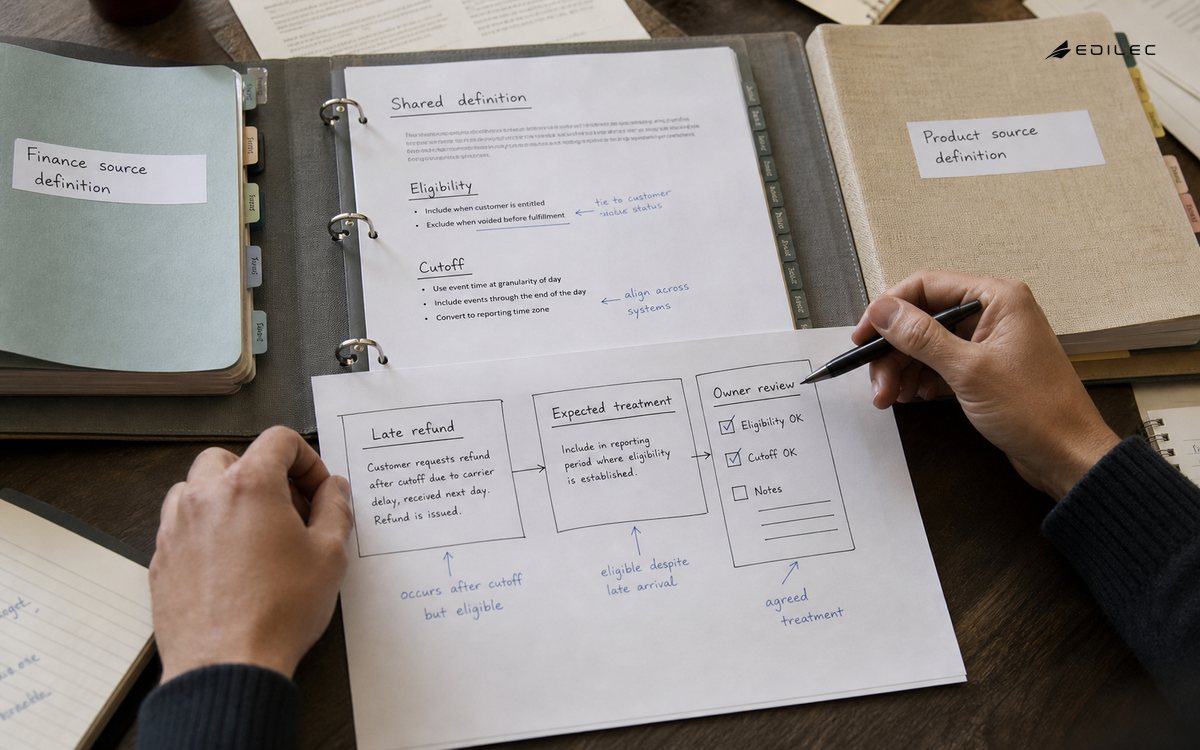 EDILEC
Finance source
definition
Shared definition
Eligibility
• Include when customer is entitled
• Exclude when voided before fulfillment
← tie to customer
status
Cutoff
• Use event time at granularity of day
• Include events through the end of the day
• Convert to reporting time zone
← align across
systems
Product source
definition
Late refund
Customer requests refund
after cutoff due to carrier
delay, received next day.
Refund is issued.
occurs after cutoff
but eligible
Expected treatment
Include in reporting
period where eligibility
is established.
eligible despite
late arrival
Owner review
Eligibility OK
Cutoff OK
Notes
agreed
treatment